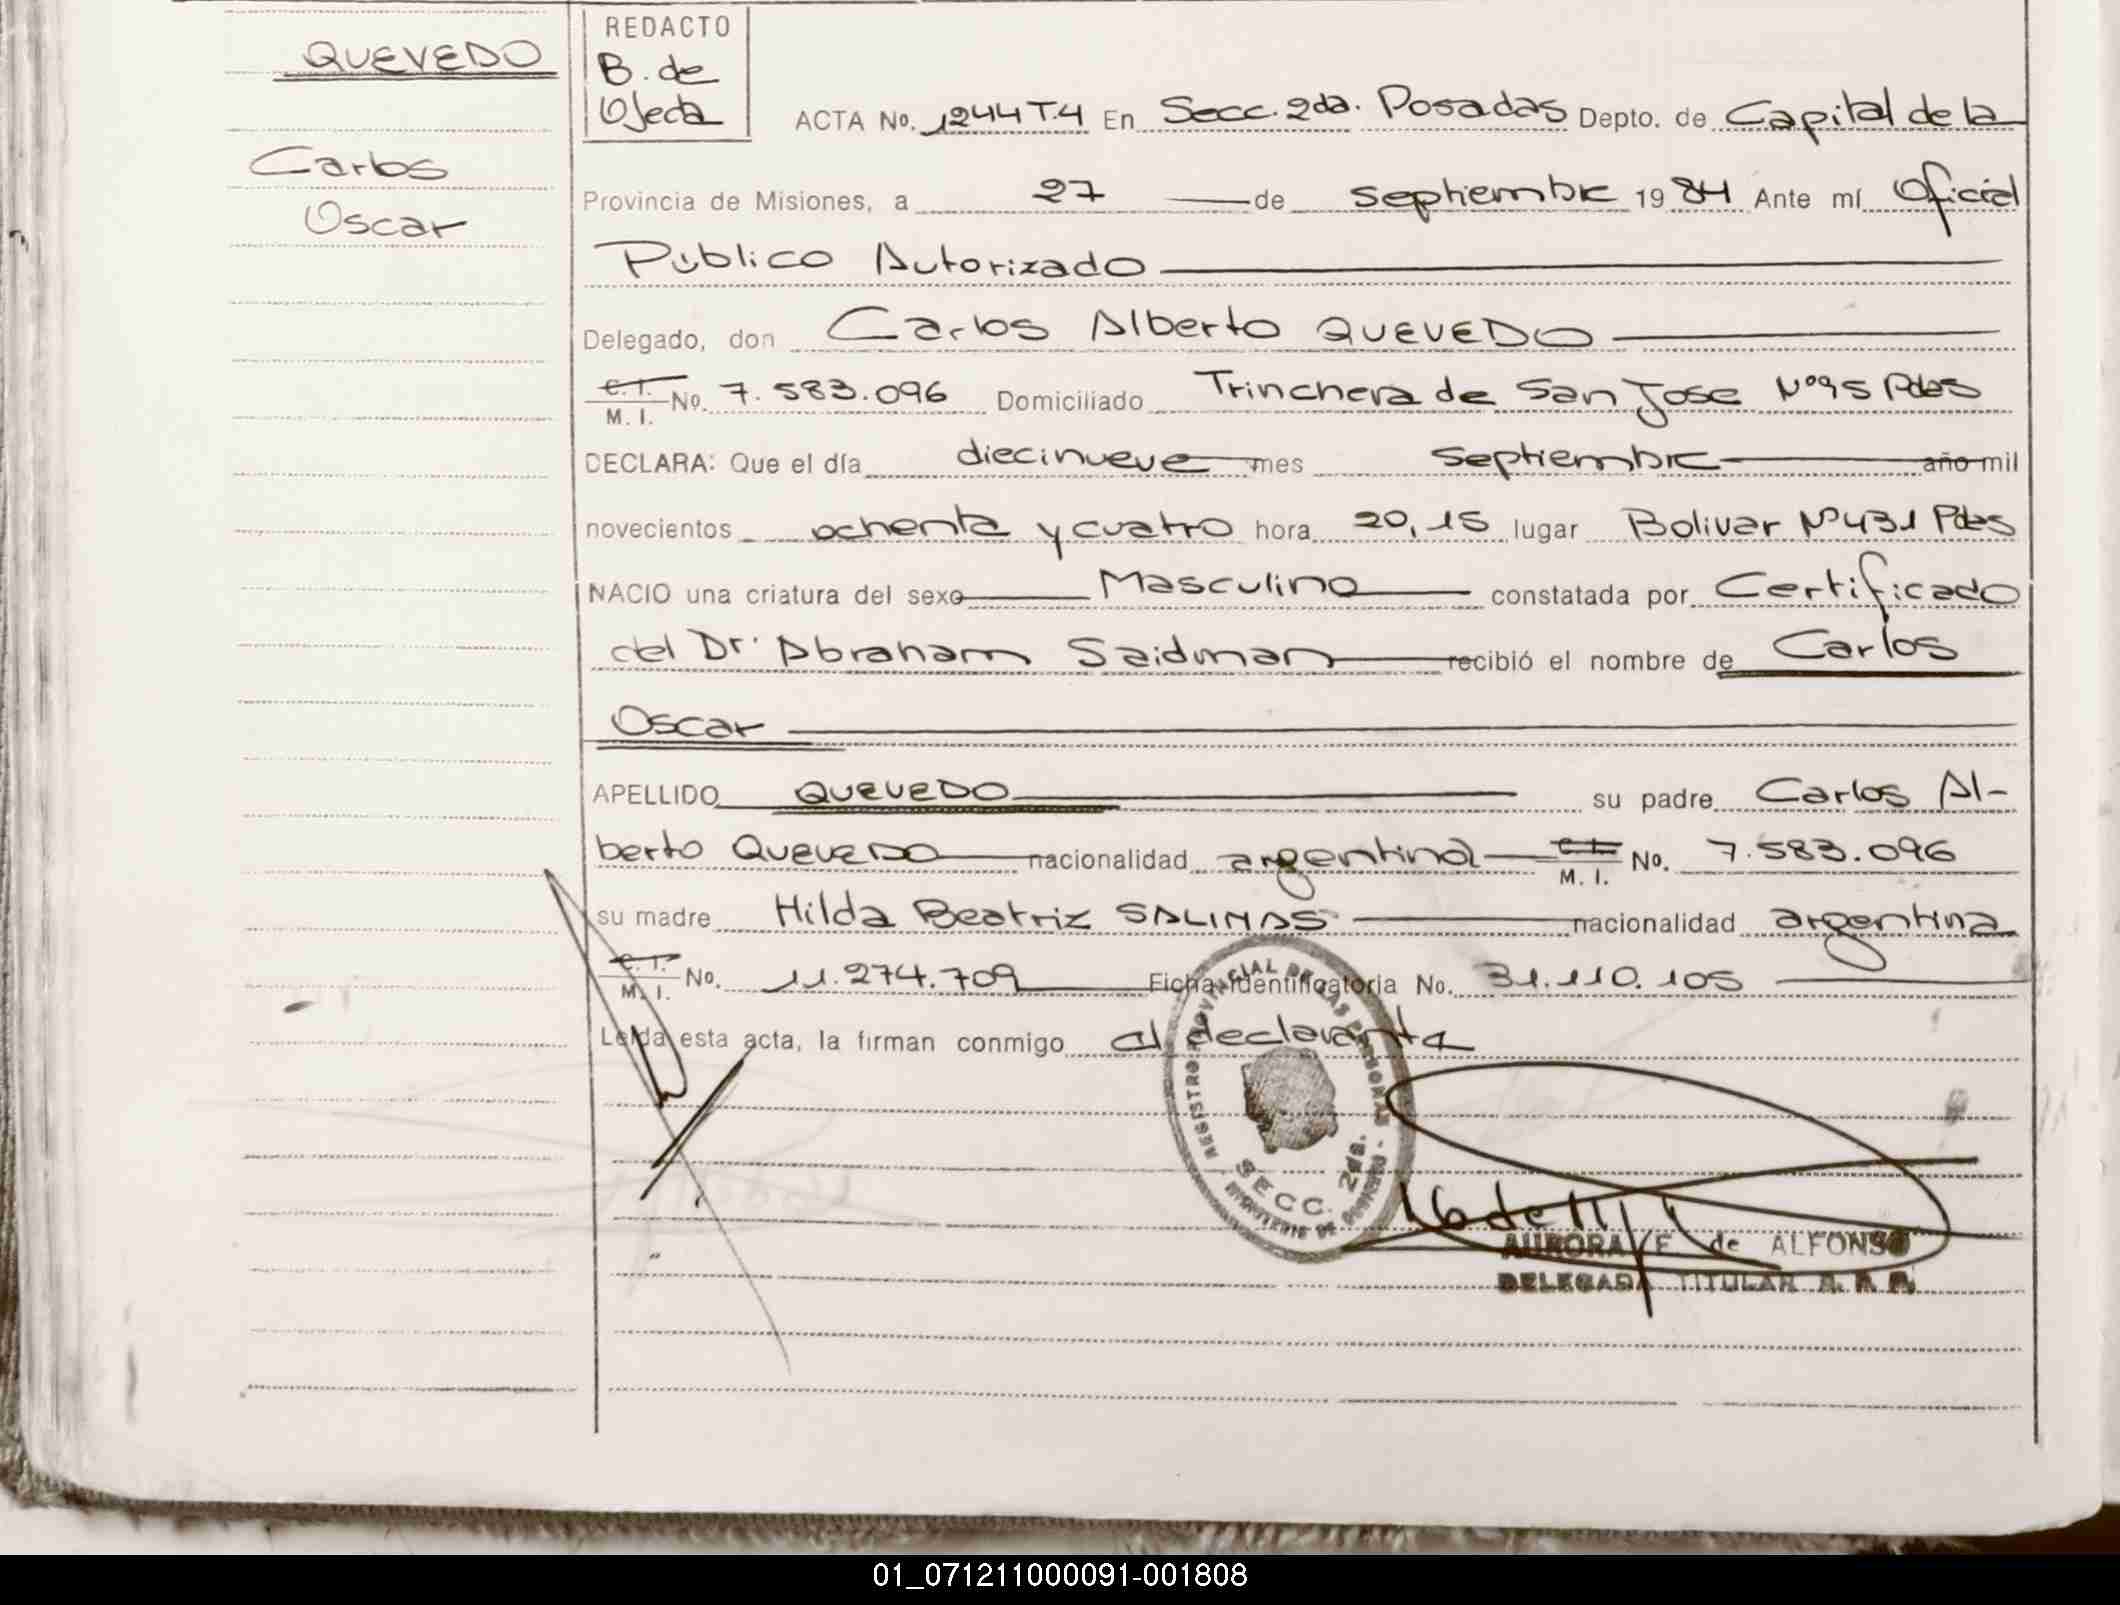 QUEVEDO
Carlos
Oscar
REDACTO
B. de
Ojeda
ACTA No. 1244 T.4 En Secc. 2da. Posadas Depto. de Capital de la
Provincia de Misiones, a 27 de septiembre 1984 Ante mí Oficial
Público Autorizado
Delegado, don Carlos Alberto QUEVEDO
C. I.
M. I. No. 7.583.096 Domiciliado Trinchera de San Jose Nº95 Pdas
DECLARA: Que el día diecinueve mes septiembre año mil
novecientos ochenta y cuatro hora 20,15 lugar Bolivar Nº431 Pdas
NACIO una criatura del sexo Masculino constatada por Certificado
del Dr. Abraham Saidman recibió el nombre de Carlos
Oscar
APELLIDO QUEVEDO su padre Carlos Al-
berto QUEVEDO nacionalidad argentina C. I. No. 7.583.096
M. I.
su madre Hilda Beatriz SALINAS nacionalidad argentina
C. I. No. 11.274.709 Ficha Identificatoria No. 31.110.105
M. I.
Leída esta acta, la firman conmigo el declarante
REGISTRO PROVINCIAL DE LAS PERSONAS
SECC. 2da.
AURORA F. de ALFONSO
DELEGADA TITULAR R. P. P.
01_071211000091-001808